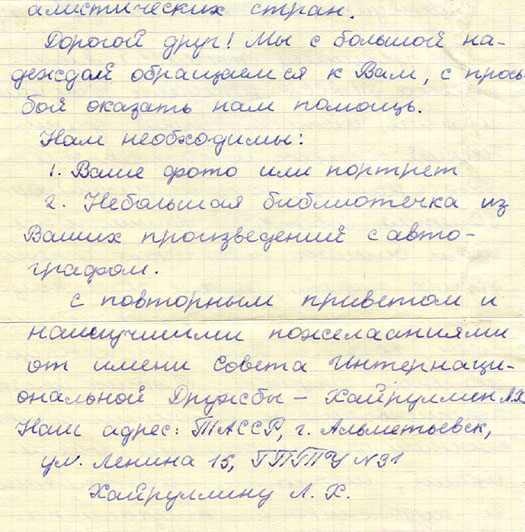 алистических стран.
Дорогой друг! Мы с большой на-
деждой обращаемся к Вам, с прось
бой оказать нам помощь.
Нам необходимы:
1. Ваше фото или портрет
2. Небольшая библиотечка из
Ваших произведений с авто-
графом.
с повторным приветом и
наилучшими пожеланиями
от имени Совета Интернаци-
ональной Дружбы - Хайруллин Л.Х
Наш адрес: ТАССР, г. Альметьевск,
ул. Ленина 15, ГПТУ N 31
Хайруллину Л. Х.